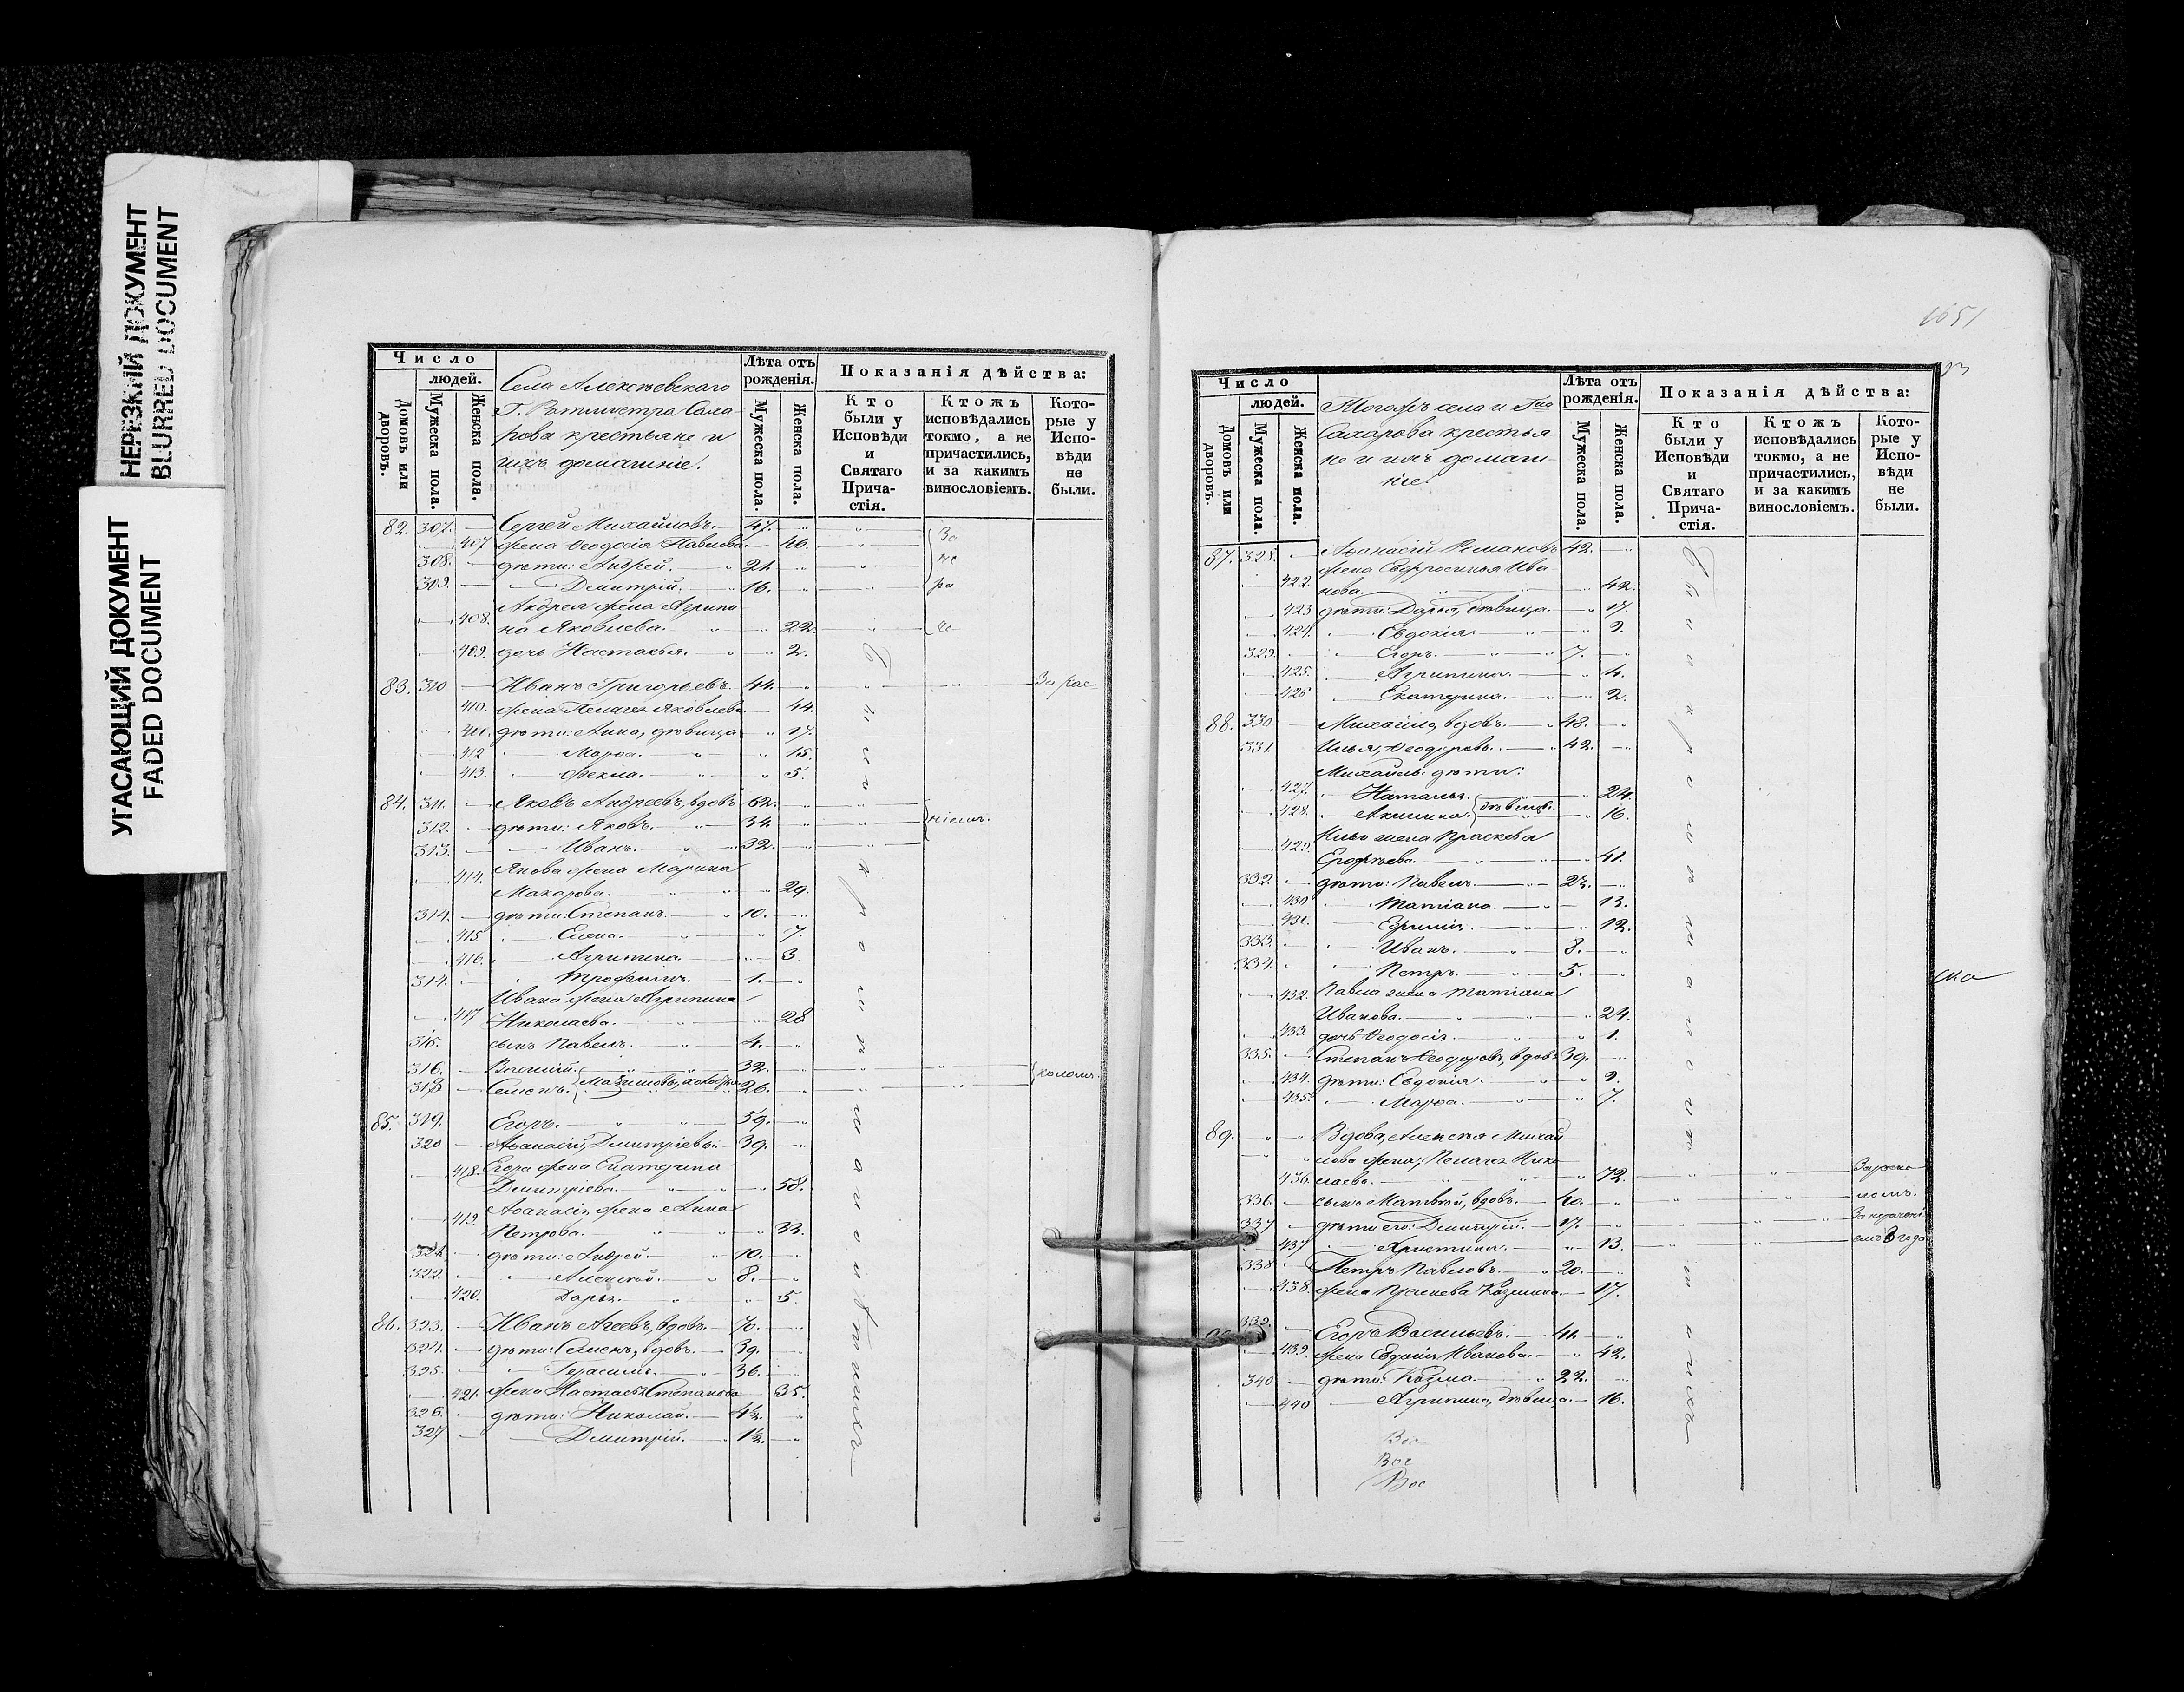 НЕРЕЗКИЙ ДОКУМЕНТ
BLURRED DOCUMENT
УГАСАЮЩИЙ ДОКУМЕНТ
FADED DOCUMENT
Число
людей.
Домовъ или дворовъ.
Мужеска пола.
Женска пола.
Села Алексѣевскаго
Г. Ротмистра Саха-
рова крестьяне и
ихъ домашніе.
Лѣта отъ рожденія.
Мужеска пола.
Женска пола.
Показанія дѣйства:
Кто были у Исповѣди и Святаго Прича-стія.
Ктожъ исповѣдались токмо, а не причастились, и за какимъ винословіемъ.
Кото-рые у Испо-вѣди не были.
82. 307. Сергей Михайловъ. 47.
407 жена Ѳеодосія Павлова 46. За
308. дѣти: Андрей. 21. не
309. Димитрій. 16. ра
Андрея жена Агрипи
408. на Яковлева. 22.
409. дочь Настасья. 2.
83. 310 Иванъ Григорьевъ. 44. За рас-
410. жена Пелагея Яковлева 44.
411. дѣти: Анна, дѣвица 17.
412 Марѳа. 15.
413. Ѳекла. 5.
84. 311. Яковъ Андреевъ, вдовъ 62.
312. дѣти: Яковъ. 34. ніемъ.
313. Иванъ. 32.
Якова жена Марина
414. Макарова. 29.
314. дѣти: Степанъ. 10.
415 Елена. 7.
416. Агрипина. 3.
314. Трофимъ. 1.
Ивана жена Агрипина
417 Николаева. 28
315. сынъ Павелъ. 4.
316. 32.
318 Семенъ. 26. коломъ.
85. 319. Егоръ. 59.
320 Аѳанасій, Димитріевы. 39.
418. Егора жена Екатерина
Димитріева. 58.
Аѳанасія жена Анна
419. Петрова. 33.
321 дѣти: Андрей. 10.
322. Алексѣй. 8.
420. Дарья. 5.
86. 323. Иванъ Агеевъ, вдовъ. 70.
324. дѣти: Семенъ, вдовъ. 39.
325. Герасимъ. 36.
421. жена Настасья Степанова 35.
326. дѣти: Николай. 4½.
327 Димитрій. 1½.
1651
Число
людей.
Домовъ или дворовъ.
Мужеска пола.
Женска пола.
Тогожъ села и Гна
Сахарова крестья-
не и ихъ домаш-
ніе.
Лѣта отъ рожденія.
Мужеска пола.
Женска пола.
Показанія дѣйства:
Кто были у Исповѣди и Святаго Прича-стія.
Ктожъ исповѣдались токмо, а не причастились, и за какимъ винословіемъ.
Кото-рые у Испо-вѣди не были.
87. 328. Аѳанасій Романовъ 42.
жена Евфросинья Ива
422. нова. 42.
423 дѣти: Дарья, дѣвица. 17.
424. Евдокія. 9.
329. Егоръ. 7.
425. Агрипина. 4.
426 Екатерина. 2.
88. 330 Михаилъ, вдовъ. 48.
331. Илья, Ѳеодоровы. 42.
Михаила дѣти:
427. Наталья. 24.
428. Акилина. дѣвицы. 16.
Ильи жена Праскева
429. Ерофѣева. 41.
332. дѣти: Павелъ. 23.
430 Татіана. 13.
431. 12.
333. Иванъ. 8.
334. Петръ. 5.
432. Павла жена Татіана
Иванова. 24.
433 дочь Ѳеодосія. 1.
335. Степанъ Ѳеодоровъ, вдовъ 39.
434. дѣти: Евдокія. 9.
435. Марѳа. 7.
89. Вдова, Алексѣя Михай
лова жена, Пелагея Нико
436. лаева. 72. За раско
336. сынъ Матвей, вдовъ. 40. ломъ.
337 дѣти его: Димитрій. 17.
437 Христина. 13. года
338 Петръ Павловъ. 20.
438. жена Праскева Козмина 17.
339. Егоръ Васильевъ. 41.
439. жена Евдокія Иванова. 42.
340 дѣти: Козма. 22.
440 Агрипина, дѣвица. 16.
Вос
Вос
Вос